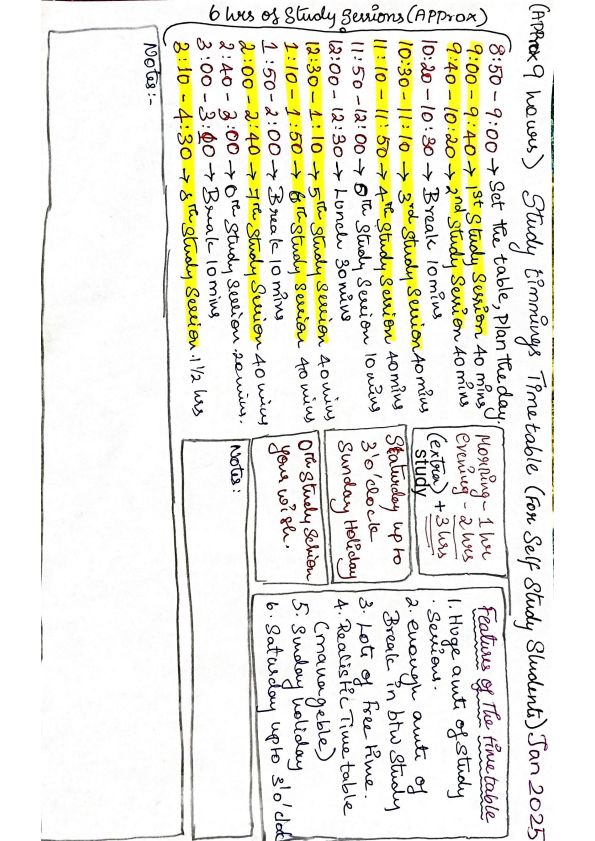 (Approx 9 hours) Study timmings Timetable (For Self Study Students) Jan 2025
6 hrs of Study Sessions (Approx)
8:50 - 9:00 → Set the table, Plan the day.
9:00 - 9:40 → 1st Study Session 40 mins
9:40 - 10:20 → 2nd Study Session 40 mins
10:20 - 10:30 → Break 10 mins
10:30 - 11:10 → 3rd Study Session 40 mins
11:10 - 11:50 → 4th Study Session 40 mins
11:50 - 12:00 → 0th Study Session 10 mins
12:00 - 12:30 → Lunch 30 mins
12:30 - 1:10 → 5th Study Session 40 mins
1:10 - 1:50 → 6th Study Session 40 mins
1:50 - 2:00 → Break 10 mins
2:00 - 2:40 → 7th Study Session 40 mins
2:40 - 3:00 → 0th Study Session 20 mins.
3:00 - 3:10 → Break 10 mins
3:10 - 4:30 → 8th Study Session. 1 1/2 hrs
Notes:-
Morning - 1 hr
Evening - 2 hrs
(extra) + 3 hrs
study
Saturday up to
3'o'clock
Sunday Holiday
0th Study Session
your wish.
Notes:
Features of The timetable
1. Huge amt of Study
Sessions.
2. enough amt of
Break in btw Study
3. Lots of Free time.
4. Realistic Time table
(manageble)
5. Sunday holiday
6. Saturday upto 3'o'clock